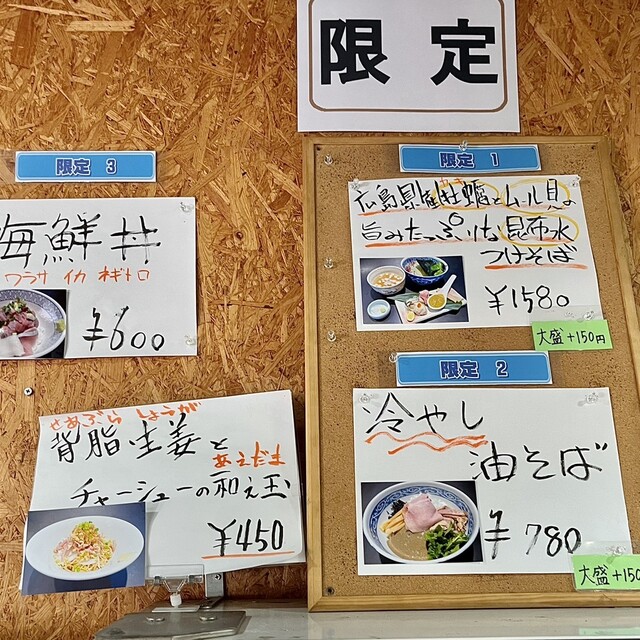 限定
限定 1
広島県産牡蠣とムール貝の
かき
旨みたっぷりな昆布水
つけそば
¥1580
大盛+150円
限定 2
冷やし
油そば
¥780
大盛+150
限定 3
海鮮丼
ワラサ イカ ネギトロ
¥600
せあぶら しょうが
背脂生姜と
あえだま
チャーシューの和え玉
¥450